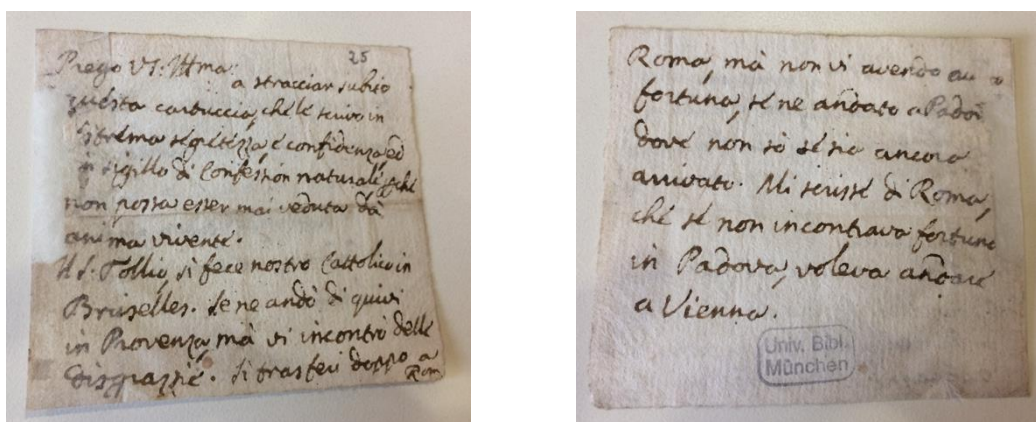 25
Prego VS: Illma
a stracciar subito
questa cartuccia, che le scrivo in
estrema segretezza, e confidenza, ed
in sigillo di Confession naturale, perché
non possa esser mai veduta dà
anima vivente.
Il S. Tollio si fece nostro Cattolico in
Bruselles. Se ne andò di quivi
in Provenza, mà vi incontrò delle
disgrazzie. Si trasferì doppo a
Rom
Roma, mà non vi avendo
fortuna, se ne andato a Padoa
dove non sò se sia ancora
arrivato. Mi scrisse di Roma,
ché se non incontrava fortuna
in Padova, voleva andare
a Vienna.
Univ. Bibl.
München